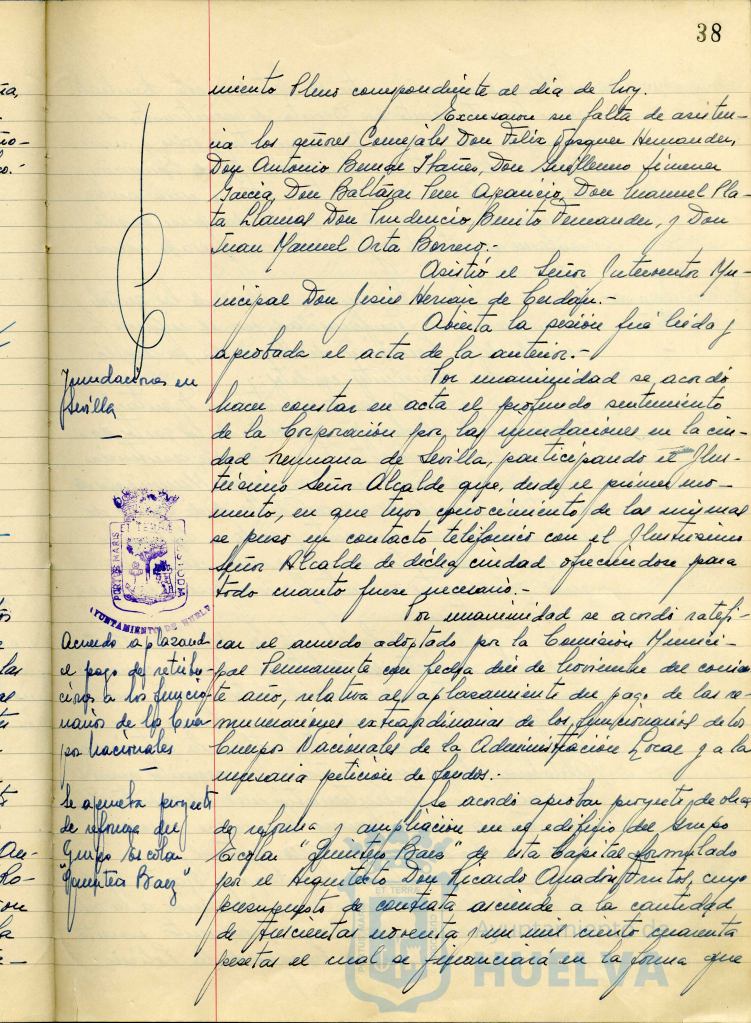 38
miento Pleno correspondiente al día de hoy.
Excusaron su falta de asisten-
cia los señores Concejales Don Felix Vazquez Hernandez,
Don Antonio Bernar Ibañez, Don Guillermo Jimenez
Garcia, Don Baltazar Perez Aparicio, Don Manuel Pla-
ta Llamas Don Prudencio Benito Fernandez, y Don
Juan Manuel Orta Borrero.-
Asistió el Señor Interventor Mu-
nicipal Don Jesus Hernaiz de Cerdán.-
Abierta la sesión fué leida y
aprobada el acta de la anterior.-
Inundaciones en
Sevilla
Por unanimidad se acordó
hacer constar en acta el profundo sentimiento
de la Corporación por las inundaciones en la ciu-
dad hermana de Sevilla, participando el Ilus-
trísimo Señor Alcalde que, desde el primer mo-
mento, en que tuvo conocimiento de las mismas
se puso en contacto telefónico con el Ilustrísimo
Señor Alcalde de dicha ciudad ofreciendose para
todo cuanto fuere necesario.-
PORTUS MARIS ET TERRAE CUSTODIA
AYUNTAMIENTO DE HUELVA
Acuerdo aplazando
el pago de retribu-
ciones a los funcio-
narios de los Cuer-
pos Nacionales
Por unanimidad se acordó ratifi-
car el acuerdo adoptado por la Comisión Munici-
pal Permanente con fecha diez de Noviembre del corrien-
te año, relativa al aplazamiento del pago de las re-
muneraciones extraordinarias de los funcionarios de los
Cuerpos Nacionales de la Administración Local y a la
necesaria petición de fondos.-
Se aprueba proyecto
de reforma del
Grupo Escolar
"Quintero Baez"
Se acordó aprobar proyecto de obra
de reforma y ampliación en el edificio del Grupo
Escolar "Quintero Baez" de esta Capital formulado
por el Arquitecto Don Ricardo Anadón Frutos, cuyo
presupuesto de contrata asciende a la cantidad
de trescientas noventa y un mil ciento cuarenta
pesetas el cual se financiará en la forma que
Ayuntamiento de
HUELVA